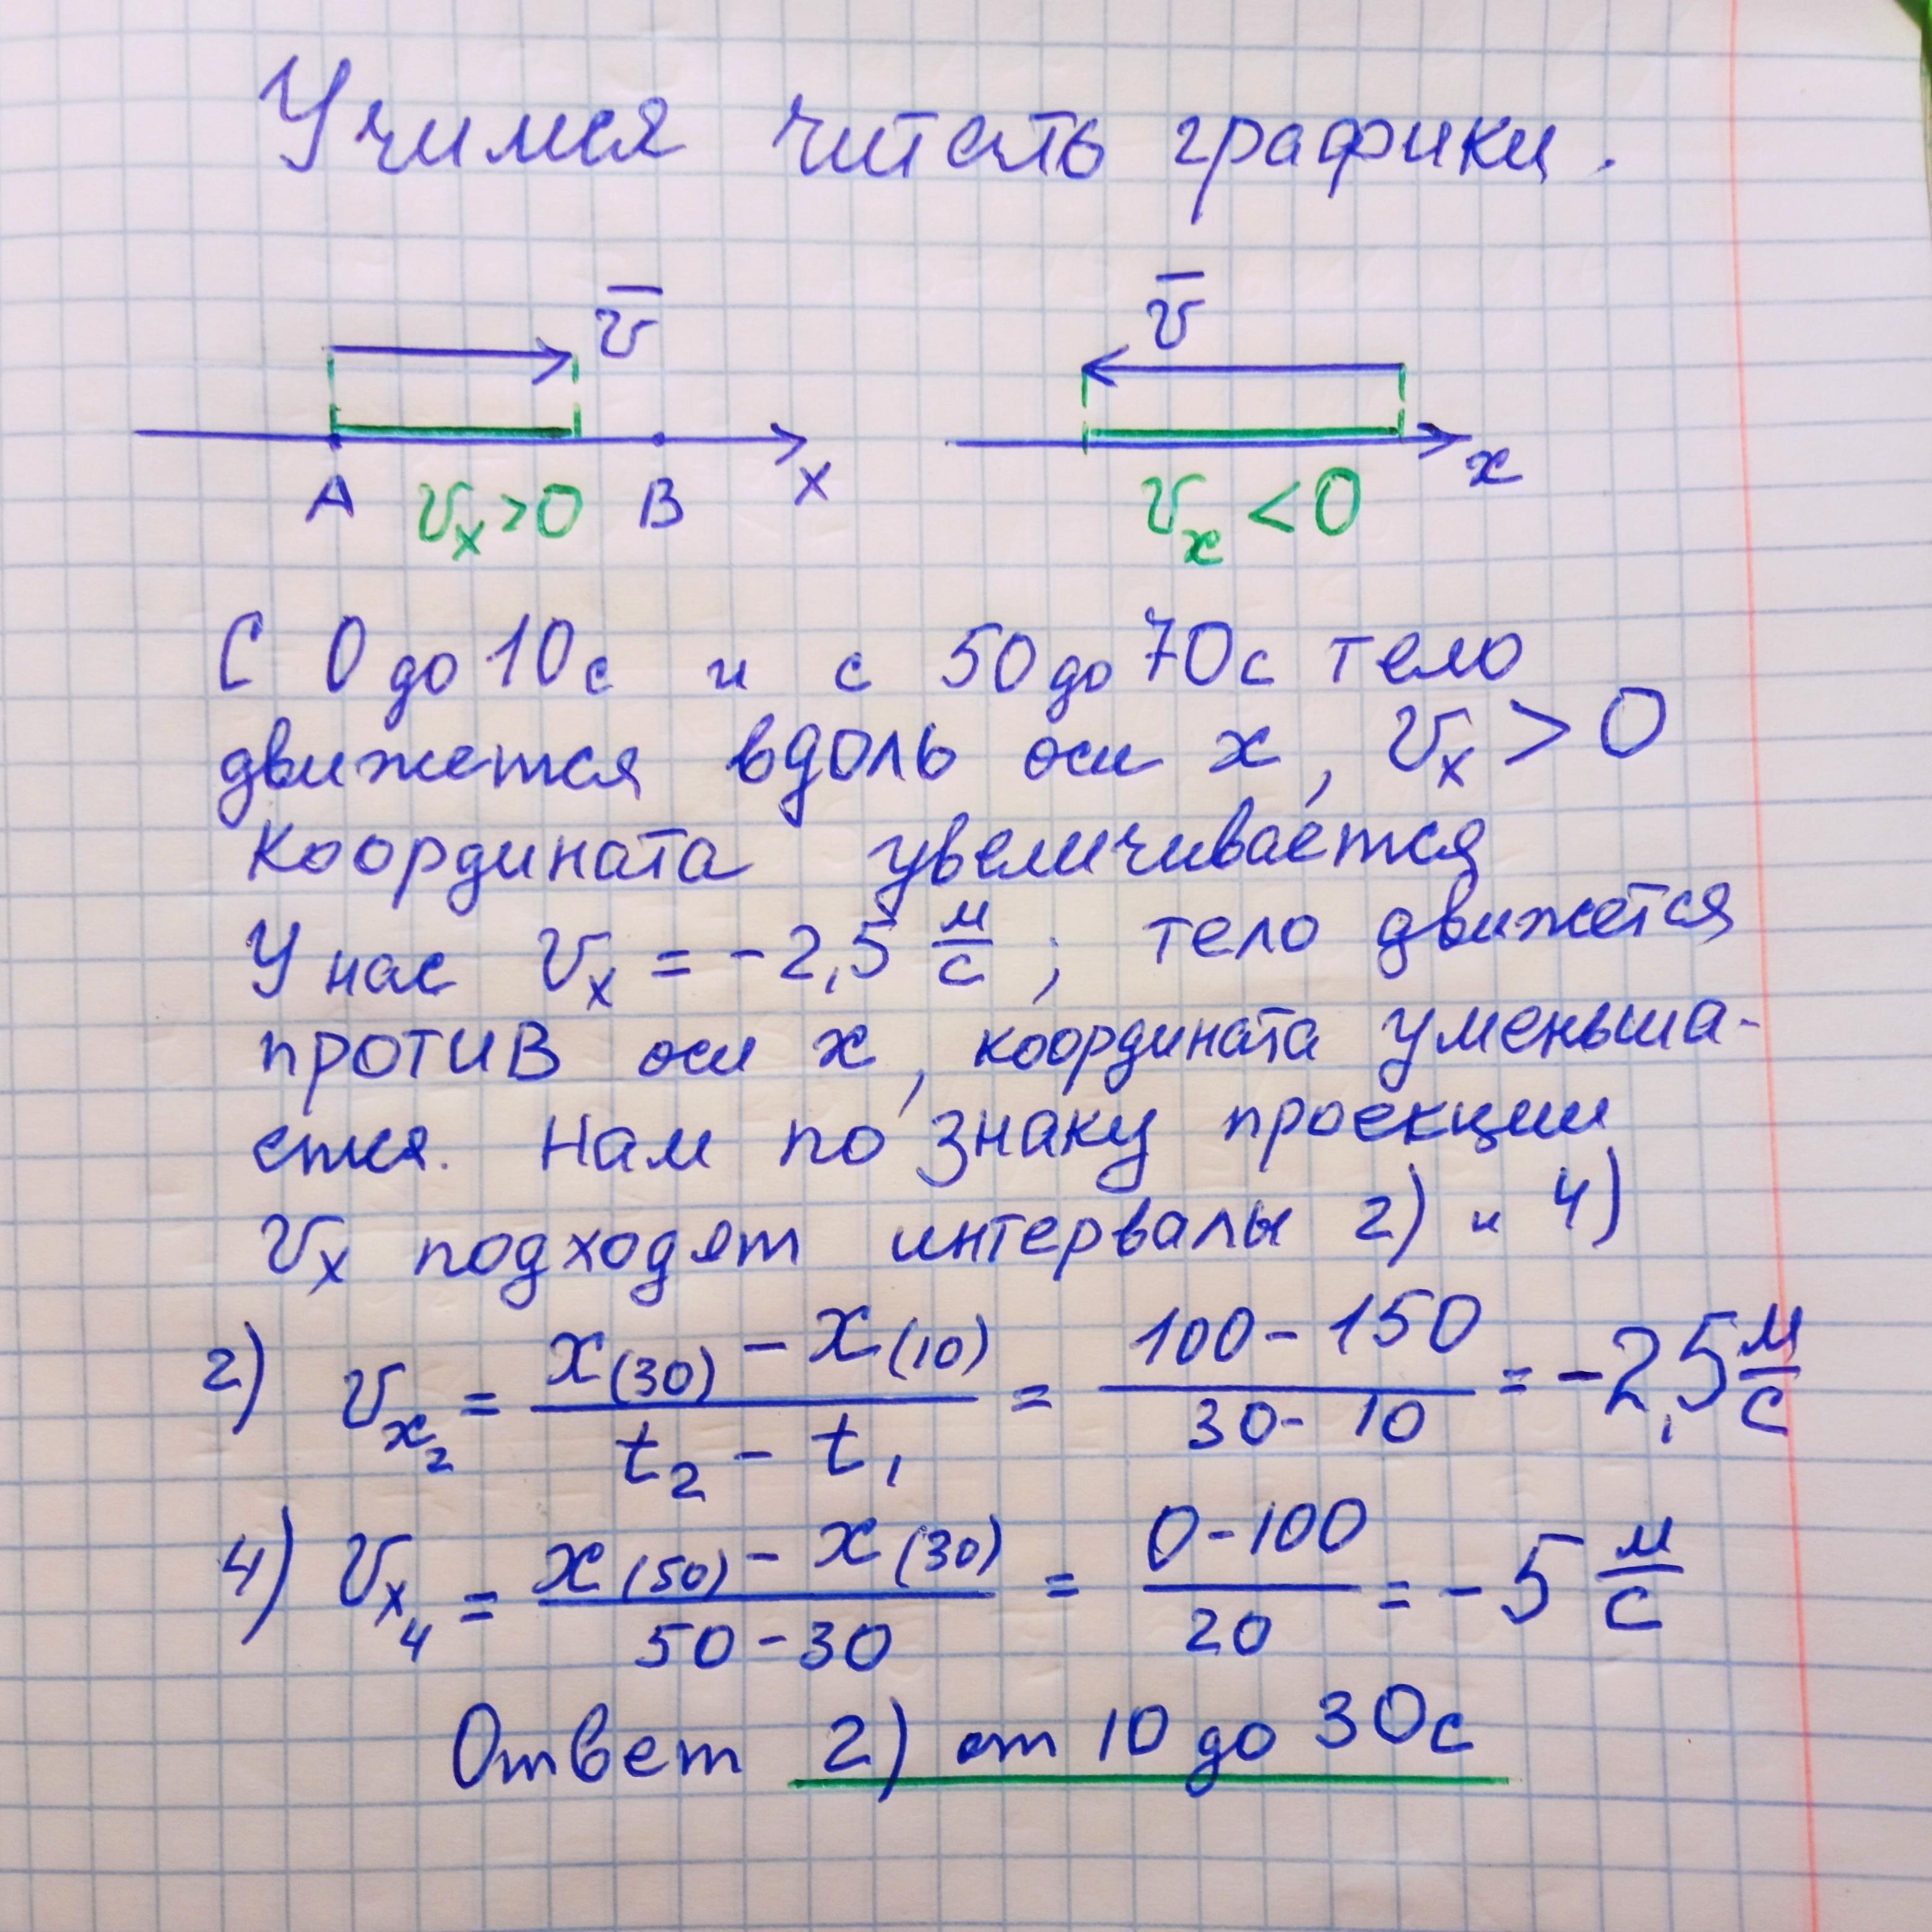 Учимся читать графики.
v̅ v̅
A vₓ>0 B x vₓ <0 x
С 0 до 10с и с 50 до 70с тело
движется вдоль оси x, vₓ > 0
Координата увеличивается
У нас vₓ = -2,5 м/с ; тело движется
против оси x, координата уменьша-
ется. Нам по знаку проекции
vₓ подходят интервалы 2) и 4)
2) vₓ₂ = (x(30) - x(10))/(t₂ - t₁) = (100 - 150)/(30 - 10) = -2,5 м/с
4) vₓ₄ = (x(50) - x(30))/(50 - 30) = (0 - 100)/20 = -5 м/с
Ответ 2) от 10 до 30с